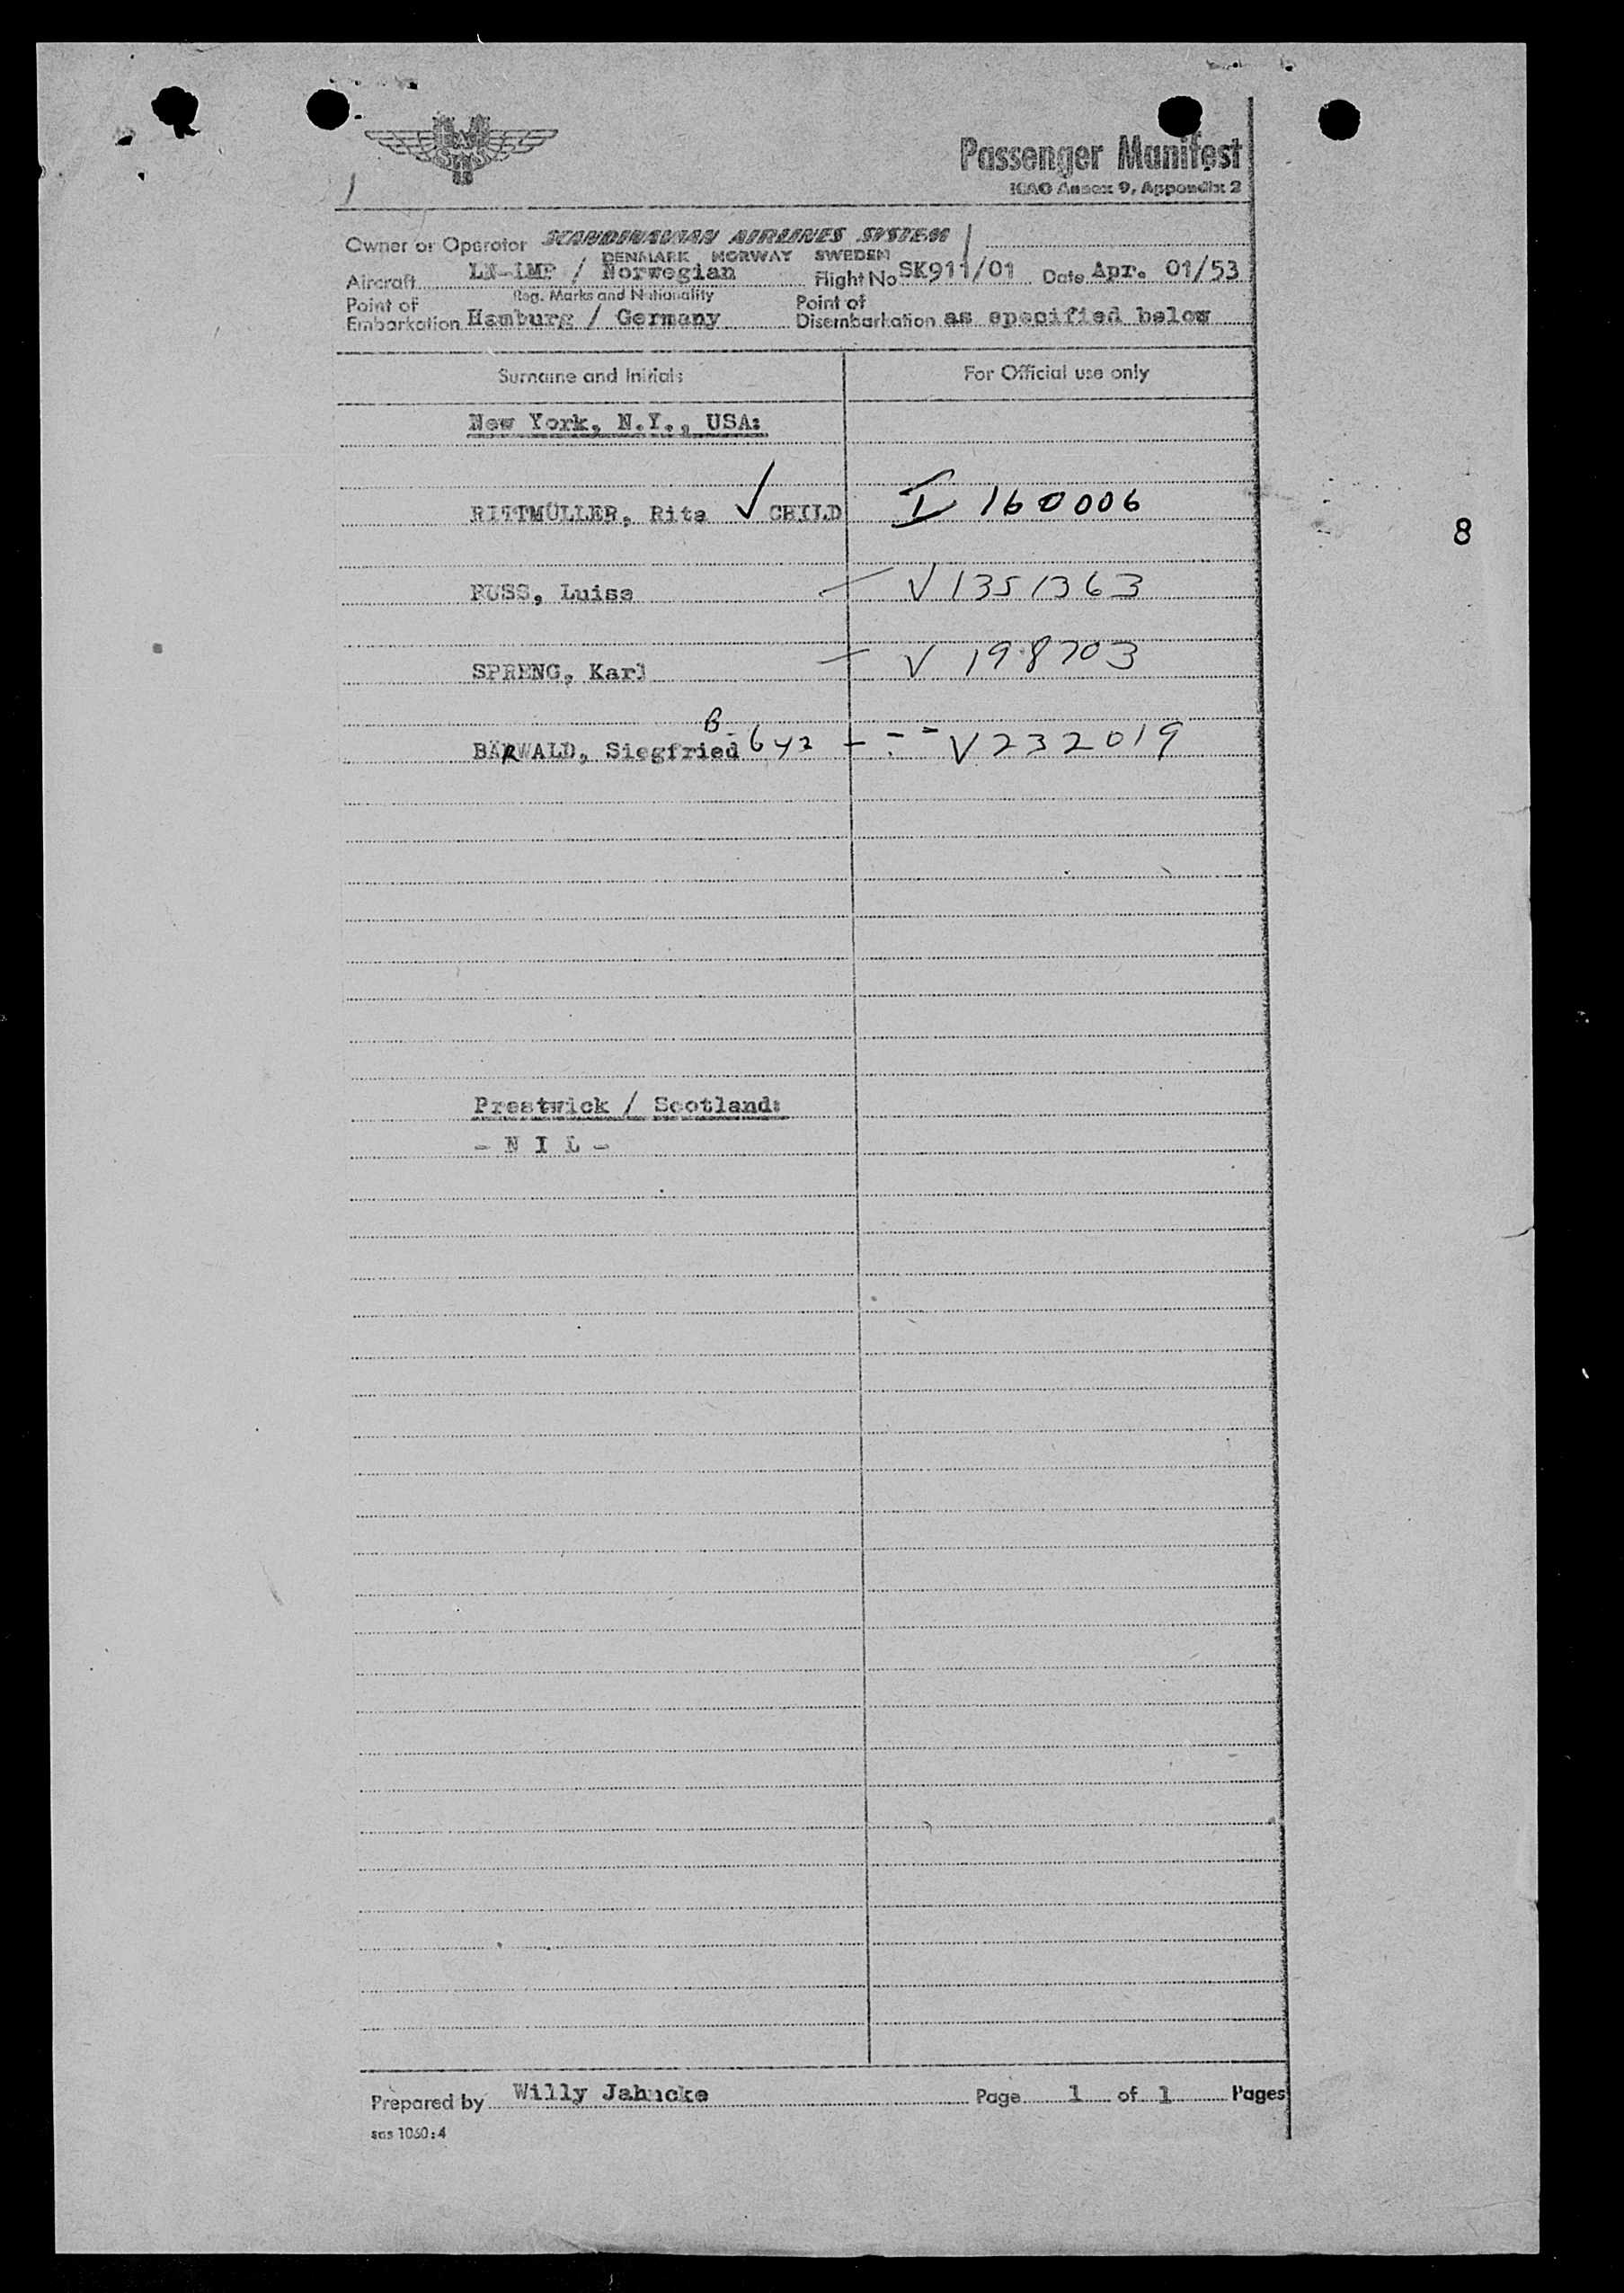 SAS
Passenger Manifest
ICAO Annex 9, Appendix 2
Owner or Operator SCANDINAVIAN AIRLINES SYSTEM
DENMARK NORWAY SWEDEN
Aircraft LN-LMP / Norwegian Flight No SK911/01 Date Apr. 01/53
Reg. Marks and Nationality
Point of Embarkation Hamburg / Germany Point of Disembarkation as specified below
Surname and Initials For Official use only
New York, N.Y., USA:
RITTMÜLLER, Rita ✓ CHILD I 160006
RUSS, Luise — V 1351363
SPRENG, Karl — V 198703
B-
BÄRWALD, Siegfried 6y2 — V 232019
8
Prestwick / Scotland:
- N I L -
Prepared by Willy Jahncke Page 1 of 1 Pages
sas 1060:4